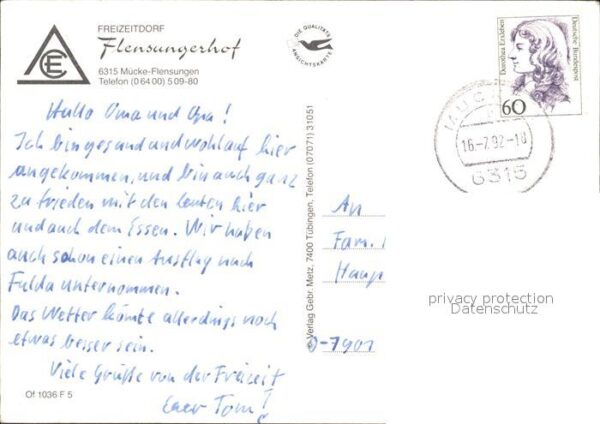 FREIZEITDORF
Flensungerhof
6315 Mücke-Flensungen
Telefon (0 64 00) 5 09-80
DIE QUALITÄTS
ANSICHTSKARTE
Dorothea Erxleben
Deutsche Bundespost
60
16.-7.92-18
6315
Hallo Oma und Opa!
Ich bin gesund und wohlauf hier
angekommen, und bin auch ganz
zufrieden mit den Leuten hier
und auch dem Essen. Wir haben
auch schon einen Ausflug nach
Fulda unternommen.
Das Wetter könnte allerdings noch
etwas besser sein.
Viele Grüße von der Freizeit
Euer Tom!
Of 1036 F 5
© Verlag Gebr. Metz, 7400 Tübingen, Telefon (07071) 31051
An
Fam.
Haup
D-7901
privacy protection
Datenschutz